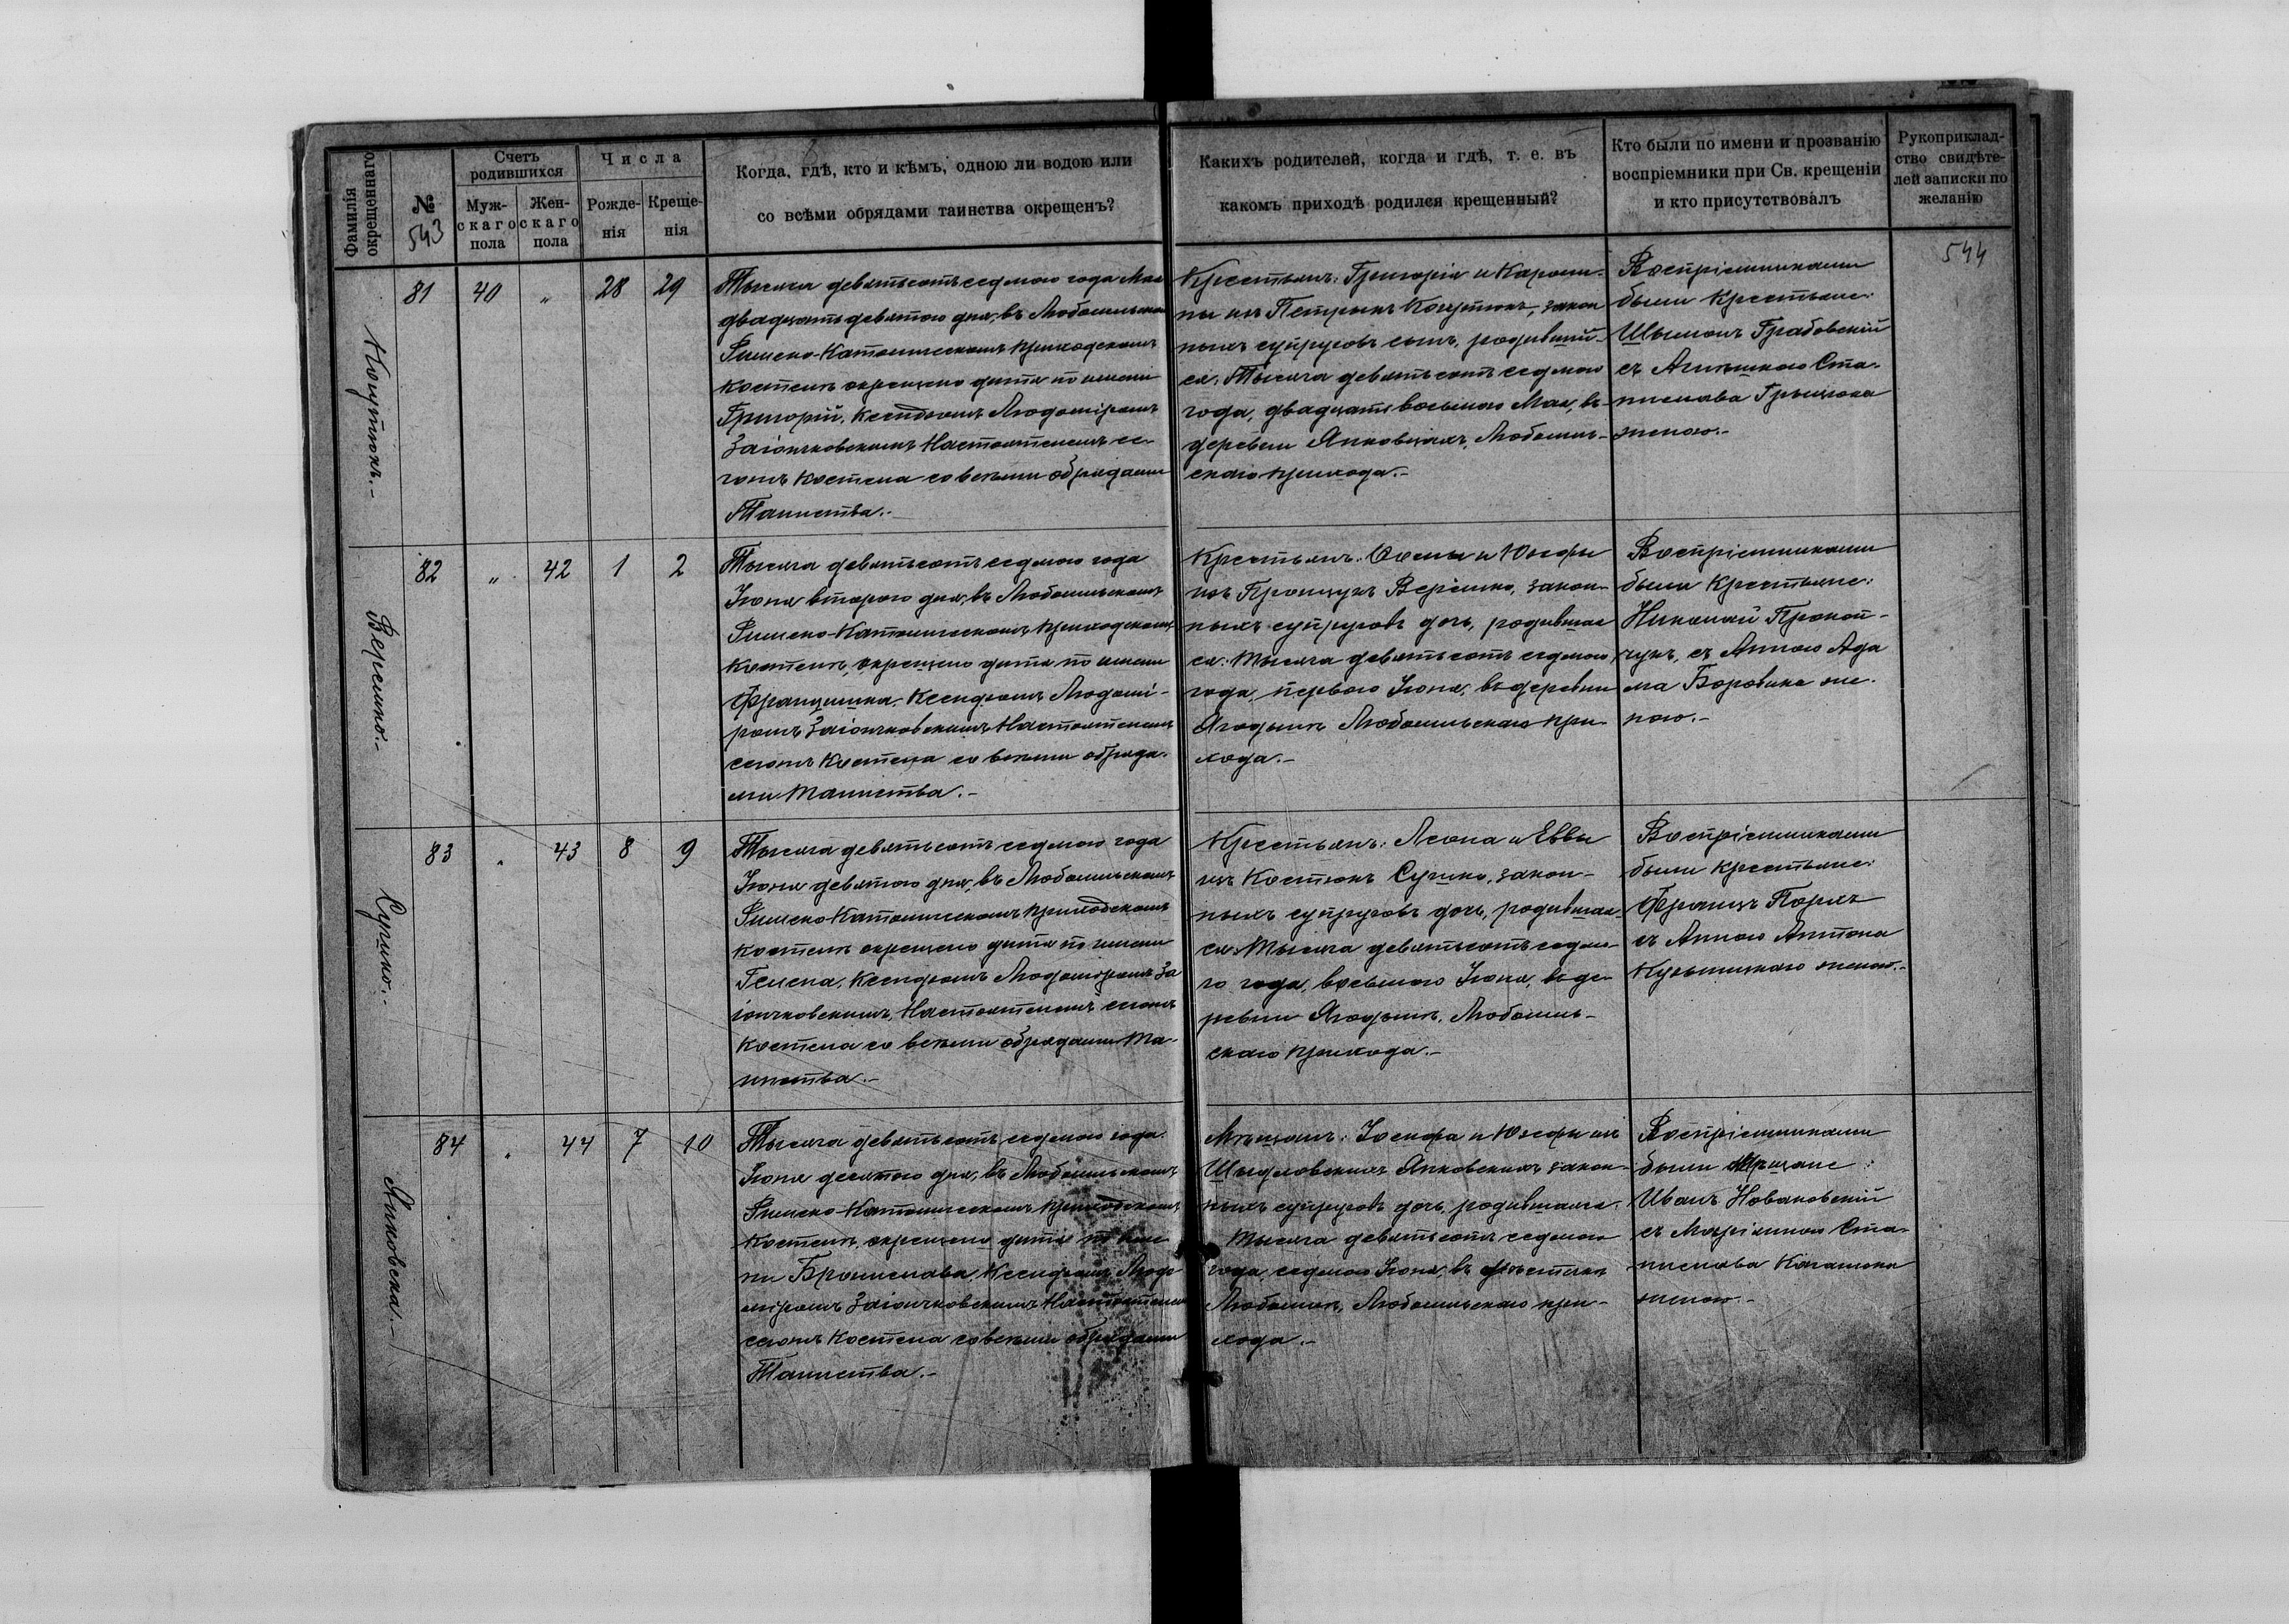 Фамилія окрещеннаго
№
543
Счетъ родившихся
Муж-
скаго
пола
Жен-
скаго
пола
Числа
Рожде-
нія
Креще-
нія
Когда, гдѣ, кто и кѣмъ, одною ли водою или
со всѣми обрядами таинства окрещенъ?
Какихъ родителей, когда и гдѣ, т. е. въ
какомъ приходѣ родился крещенный?
Кто были по имени и прозванію
воспріемники при Св. крещеніи
и кто присутствовалъ
Рукоприклад-
ство свидѣте-
лей записки по
желанію
544
81
40
„
28
29
Тысяча девятьсотъ седмого года Мая
двадцать девятого дня, въ Любомльскомъ
Римско-Католическомъ приходскомъ
костелѣ окрещено дитя по имени
Григорій, Ксендзомъ Людоміромъ
Заіончковскимъ Настоятелемъ се-
гожъ костела со всѣми обрядами
Таинства.-
Крестьянъ: Григорія и Кароли-
ны изъ Петрыкъ Коцутюкъ, закон
ныхъ супруговъ сынъ, родившій-
ся. Тысяча девятьсотъ седмого
года, двадцать восьмого Мая, въ
деревни Янковцахъ, Любомль-
скаго прихода.-
Воспріемниками
были Крестьяне:
Шымонъ Грабовскій
съ Агнѣшкою Ста-
нислава Грыцюка
женою.-
82
Веремко.-
„
42
1
2
Тысяча девятьсотъ седмого года
Іюня второго дня, въ Любомльскомъ
Римско-Католическомъ приходскомъ
костелѣ, окрещено дитя по имени
Францишка, Ксендзомъ Людомі-
ромъ Заіончковскимъ Настоятелемъ
сегожъ костела со всѣми обряда-
ми Таинства.-
Крестьянъ: Іосифа и Юзефы
изъ Процукъ Веремко, закон-
ныхъ супруговъ дочь, родившая
ся: Тысяча девятьсотъ седмого
года, первого Іюня, въ деревни
Ягодынѣ Любомльскаго при-
хода.-
Воспріемниками
были Крестьяне:
Николай Прокоп-
чукъ, съ Анною Ада
ма Боровика же-
ною.-
83
Сушко.-
„
43
8
9
Тысяча девятьсотъ седмого года
Іюня девятого дня, въ Любомльскомъ
Римско-Католическомъ приходскомъ
костелѣ окрещено дитя по имени
Гелена, Ксендзомъ Людоміромъ За
іончковскимъ, Настоятелемъ сегожъ
костела со всѣми обрядами Та-
инства.-
Крестьянъ: Леона и Еввы
изъ Костюкъ Сушко, закон-
ныхъ супруговъ дочь, родившая-
ся: Тысяча девятьсотъ седмо-
го года, восьмого Іюня, въ де-
ревни Ягодынѣ, Любомль-
скаго прихода.-
Воспріемниками
были Крестьяне:
Францъ Порхъ
съ Анною Антона
Кузьмицкаго женою.-
84
Янковска.
„
44
7
10
Тысяча девятьсотъ седмого года
Іюня десятого дня, въ Любомльскомъ
Римско-Католическомъ приходскомъ
костелѣ, окрещено дитя по име
ни Бронислава, Ксендзомъ Людо
міромъ Заіончковскимъ Настоятелемъ
сегожъ костела со всѣми обрядами
Таинства.-
Мѣщанъ: Іосифа и Юзефы изъ
Шыдловскихъ Янковскихъ закон-
ныхъ супруговъ дочь, родившаяся
Тысяча девятьсотъ седмого
года, седмого Іюня, въ мѣстечкѣ
Любомлѣ, Любомльскаго при-
хода.-
Воспріемниками
были Мѣщане:
Иванъ Новаковскій
съ Маріанною Ста-
нислава
женою.-